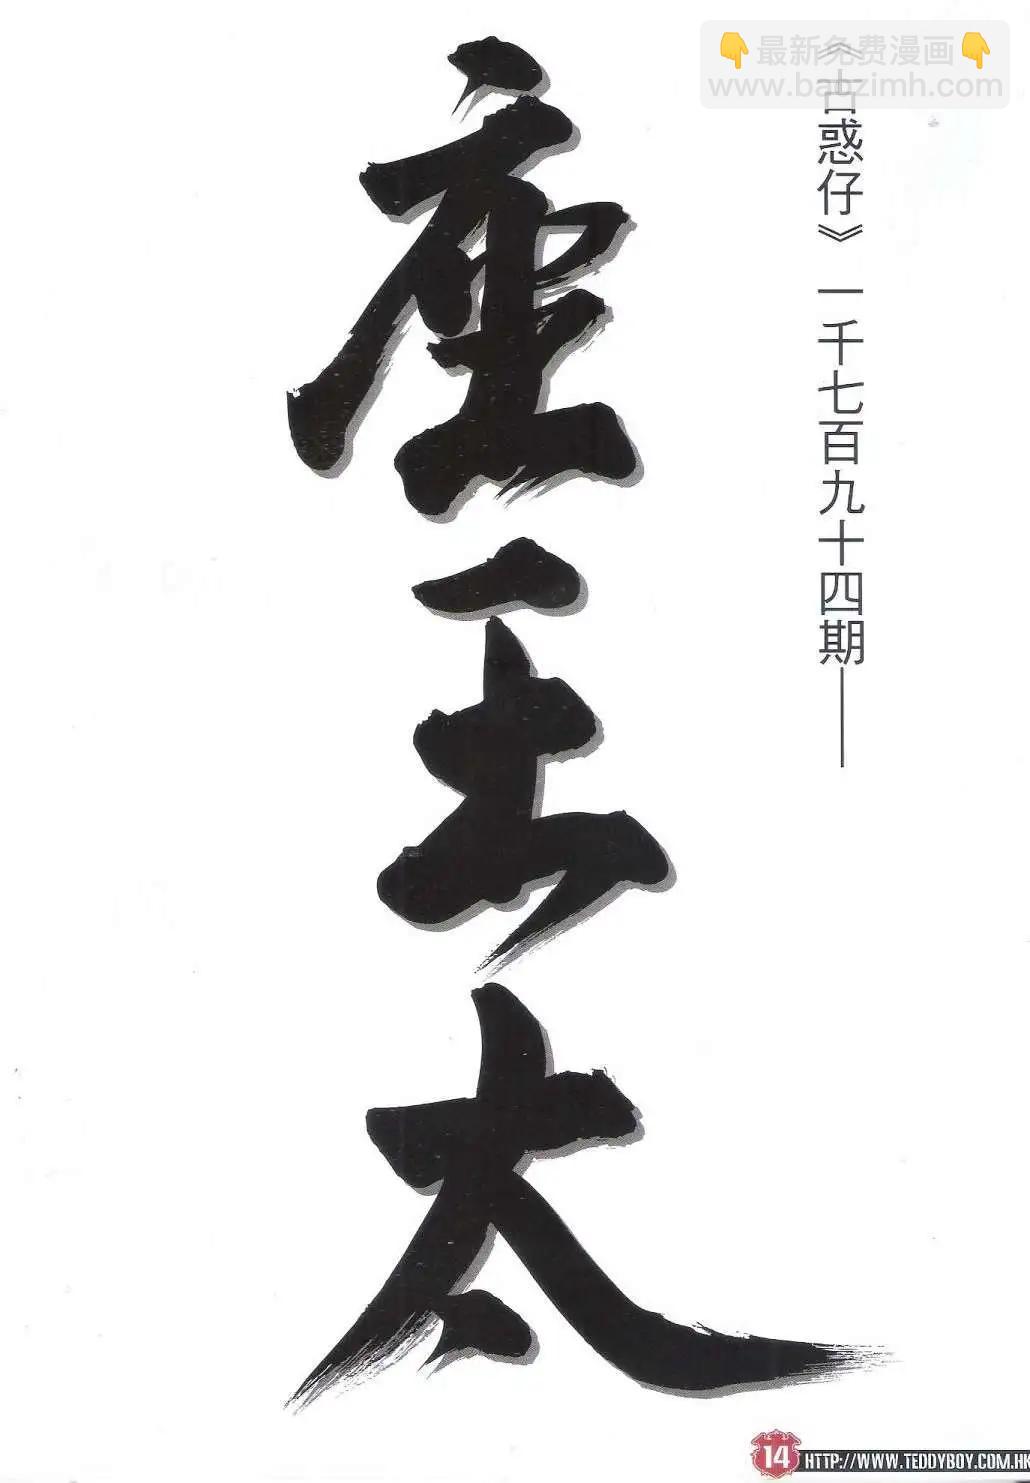 👇最新免费漫画👇
www.baozimh.com
《古惑仔》一千七百九十四期——
座王太
14 HTTP://WWW.TEDDYBOY.COM.HK